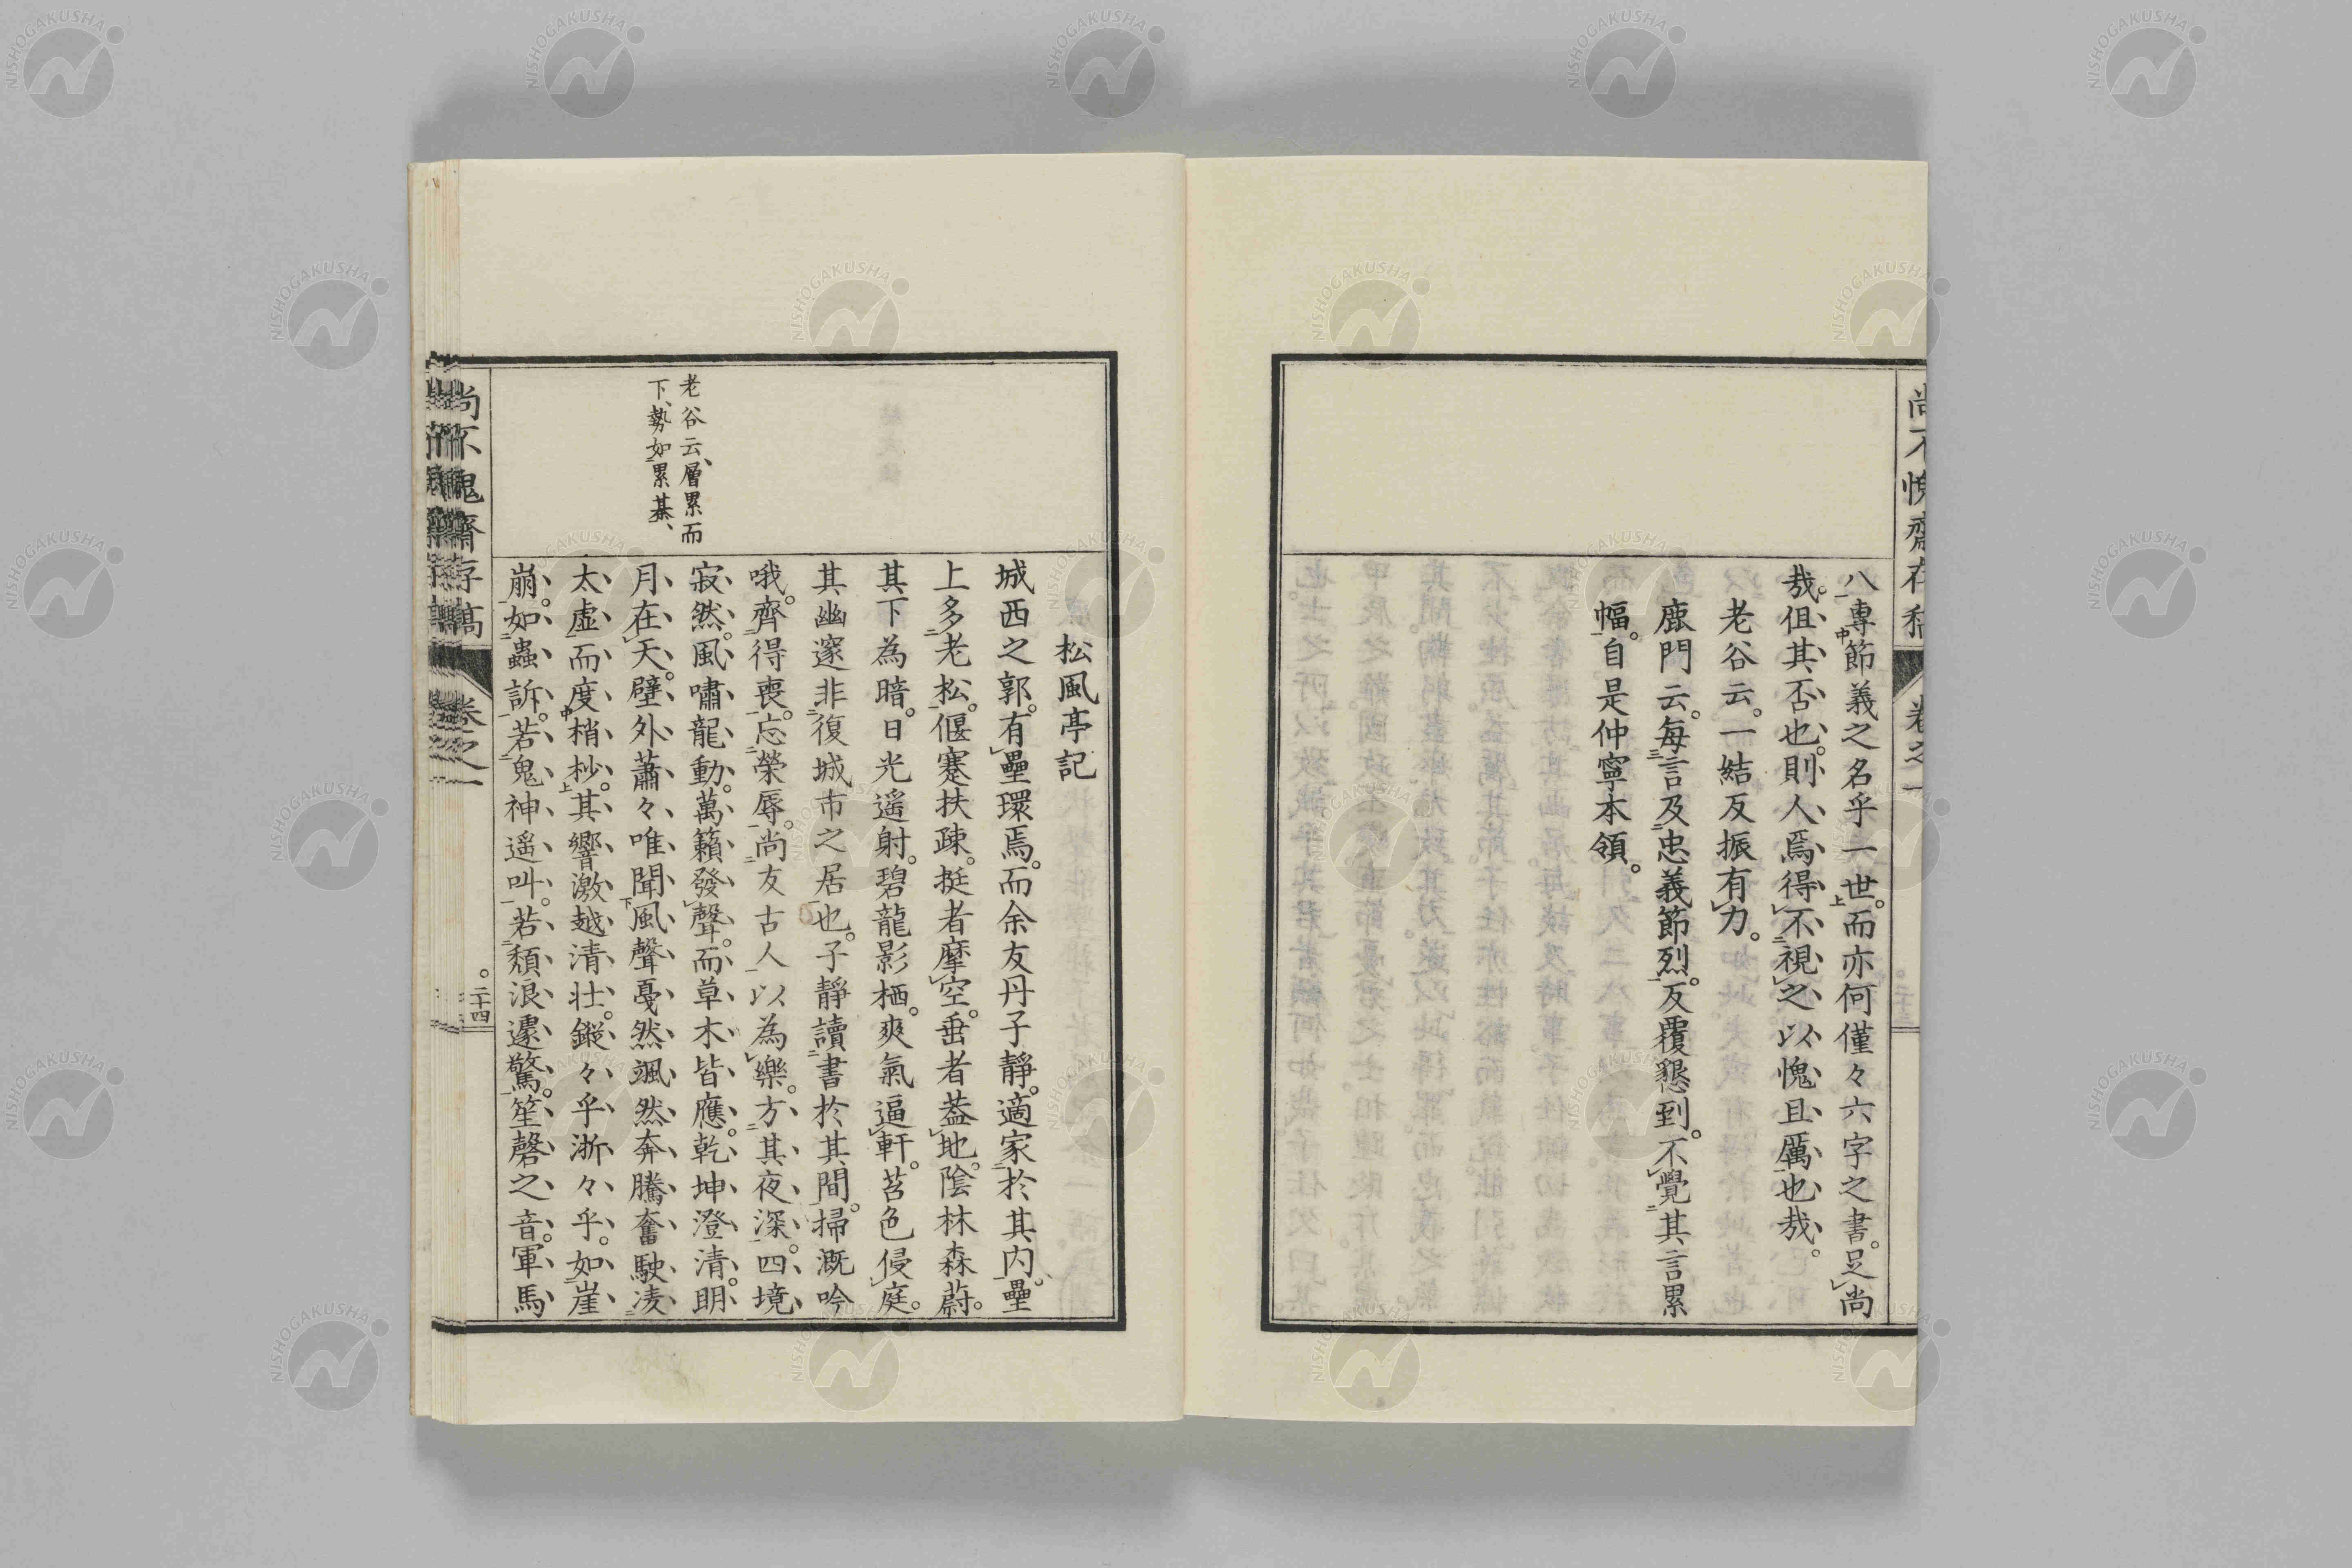 尚不愧齋存稿 卷之一
八專節義之名乎一世。而亦何僅々六字之書。足尚
哉。但其否也。則人焉得不視之以愧且厲也哉。
老谷云。一結反振有力。
鹿門云。每言及忠義節烈。反覆懇到。不覺其言累
幅。自是仲寧本領。
松風亭記
城西之郭。有壘環焉。而余友丹子靜。適家於其内。壘
上多老松。偃蹇扶疎。挺者摩空。垂者葢地。陰林森蔚。
其下為暗。日光遥射。碧龍影栖。爽氣逼軒。苔色侵庭。
其幽邃非復城市之居也。子靜讀書於其間。掃溉吟
哦。齊得喪。忘榮辱。尚友古人。以為樂。方其夜深。四境
寂然。風嘯龍動。萬籟發聲。而草木皆應。乾坤澄清。明
月在天。壁外蕭々唯聞風聲戞然颯然奔騰奮駛凌
太虚而度梢杪。其響激越清壮。鏦々乎浙々乎。如崖
崩。如蟲訴。若鬼神遥叫。若頽浪遽驚。笙磬之音。軍馬
老谷云、層累而
下、勢如累棊、
尚不愧齋存稿 卷之一 二十四
NISHOGAKUSHA